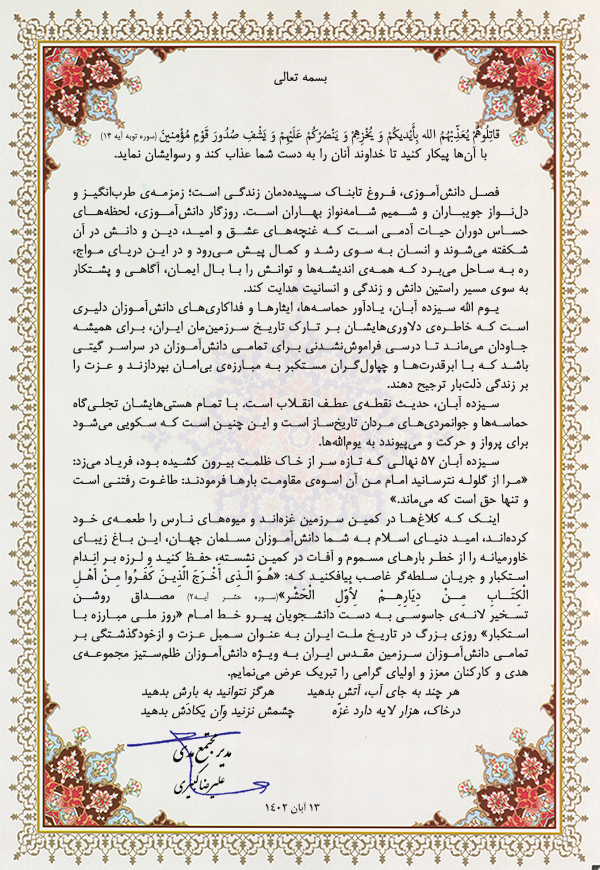 بسمه تعالی
قاتِلُوهُمْ یُعَذِّبْهُمُ الله بِأَیْدیکُمْ وَ یُخْزِهِمْ وَ یَنْصُرْکُمْ عَلَیْهِمْ وَ یَشْفِ صُدُورَ قَوْمٍ مُؤْمِنینَ (سوره توبه آیه ۱۴)
با آن‌ها پیکار کنید تا خداوند آنان را به دست شما عذاب کند و رسوایشان نماید.
فصل دانش‌آموزی، فروغ تابناک سپیده‌دمان زندگی است؛ زمزمه‌ی طرب‌انگیز و
دل‌نواز جویباران و شمیم شامه‌نواز بهاران است. روزگار دانش‌آموزی، لحظه‌های
حساس دوران حیات آدمی است که غنچه‌های عشق و امید، دین و دانش در آن
شکفته می‌شوند و انسان به سوی رشد و کمال پیش می‌رود و در این دریای مواج،
ره به ساحل می‌برد که همه‌ی اندیشه‌ها و توانش را با بال ایمان، آگاهی و پشتکار
به سوی مسیر راستین دانش و زندگی و انسانیت هدایت کند.
یوم الله سیزده آبان، یادآور حماسه‌ها، ایثارها و فداکاری‌های دانش‌آموزان دلیری
است که خاطره‌ی دلاوری‌هایشان بر تارک تاریخ سرزمین‌مان ایران، برای همیشه
جاودان می‌ماند تا درسی فراموش‌نشدنی برای تمامی دانش‌آموزان در سراسر گیتی
باشد که با ابرقدرت‌ها و چپاول‌گران مستکبر به مبارزه‌ی بی‌امان بپردازند و عزت را
بر زندگی ذلت‌بار ترجیح دهند.
سیزده آبان، حدیث نقطه‌ی عطف انقلاب است. با تمام هستی‌هایشان تجلی‌گاه
حماسه‌ها و جوانمردی‌های مردان تاریخ‌ساز است و این چنین است که سکویی می‌شود
برای پرواز و حرکت و می‌پیوندد به یوم‌الله‌ها.
سیزده آبان ۵۷ نهالی که تازه سر از خاک ظلمت بیرون کشیده بود، فریاد می‌زد:
«مرا از گلوله نترسانید امام من آن اسوه‌ی مقاومت بارها فرمودند: طاغوت رفتنی است
و تنها حق است که می‌ماند.»
اینک که کلاغ‌ها در کمین سرزمین غزه‌اند و میوه‌های نارس را طعمه‌ی خود
کرده‌اند، امید دنیای اسلام به شما دانش‌آموزان مسلمان جهان، این باغ زیبای
خاورمیانه را از خطر بارهای مسموم و آفات در کمین نشسته، حفظ کنید و لرزه بر اندام
استکبار و جریان سلطه‌گر غاصب بیافکنید که: «هُوَ الَّذی أَخْرَجَ الَّذینَ کَفَرُوا مِنْ أَهْلِ
الْکِتَابِ مِنْ دِیَارِهِمْ لِأَوَّلِ الْحَشْرِ»(سوره حشر آیه۲) مصداق روشن
تسخیر لانه‌ی جاسوسی به دست دانشجویان پیرو خط امام «روز ملی مبارزه با
استکبار» روزی بزرگ در تاریخ ملت ایران به عنوان سمبل عزت و ازخودگذشتگی بر
تمامی دانش‌آموزان سرزمین مقدس ایران به ویژه دانش‌آموزان ظلم‌ستیز مجموعه‌ی
هدی و کارکنان معزز و اولیای گرامی را تبریک عرض می‌نمایم.
هر چند به جای آب، آتش بدهید هرگز نتوانید به بارش بدهید
درخاک، هزار لایه دارد غزّه چشمش نزنید وَاِن یَکادَش بدهید
مدیر مجتمع هدی
علیرضا کبیری
۱۳ آبان ۱۴۰۲